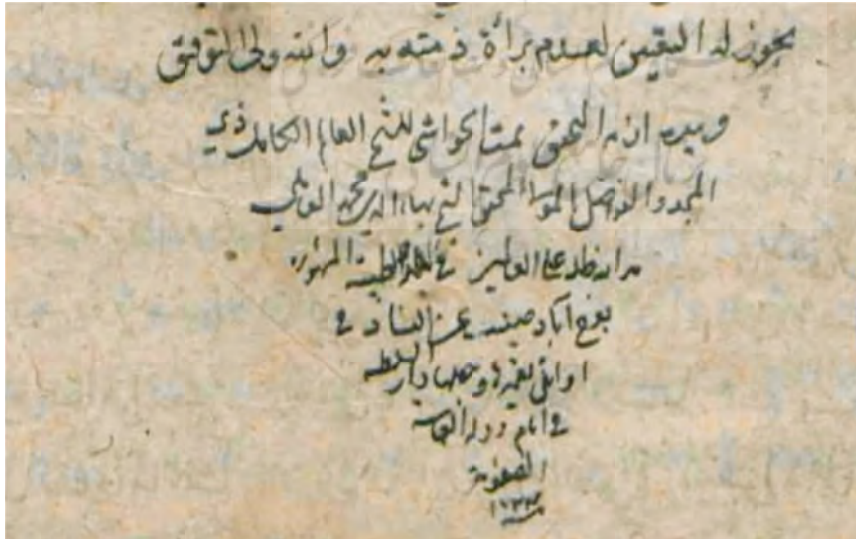 يجوز له اليقين لعدم براءة ذمته به والله ولي التوفيق
الحواشي للشيخ العالم الكامل ذي
المجد والفضل المولى المحقق الشيخ بهاء الدين محمد العاملي
مد الله ظله على العالمين في البلدة الطيبة المشهورة
بفرح آباد صينت عن الفساد في
اوائل تعميرها وجعلها دار السلطنة
في ايام دولة القاهرة
الصفوية